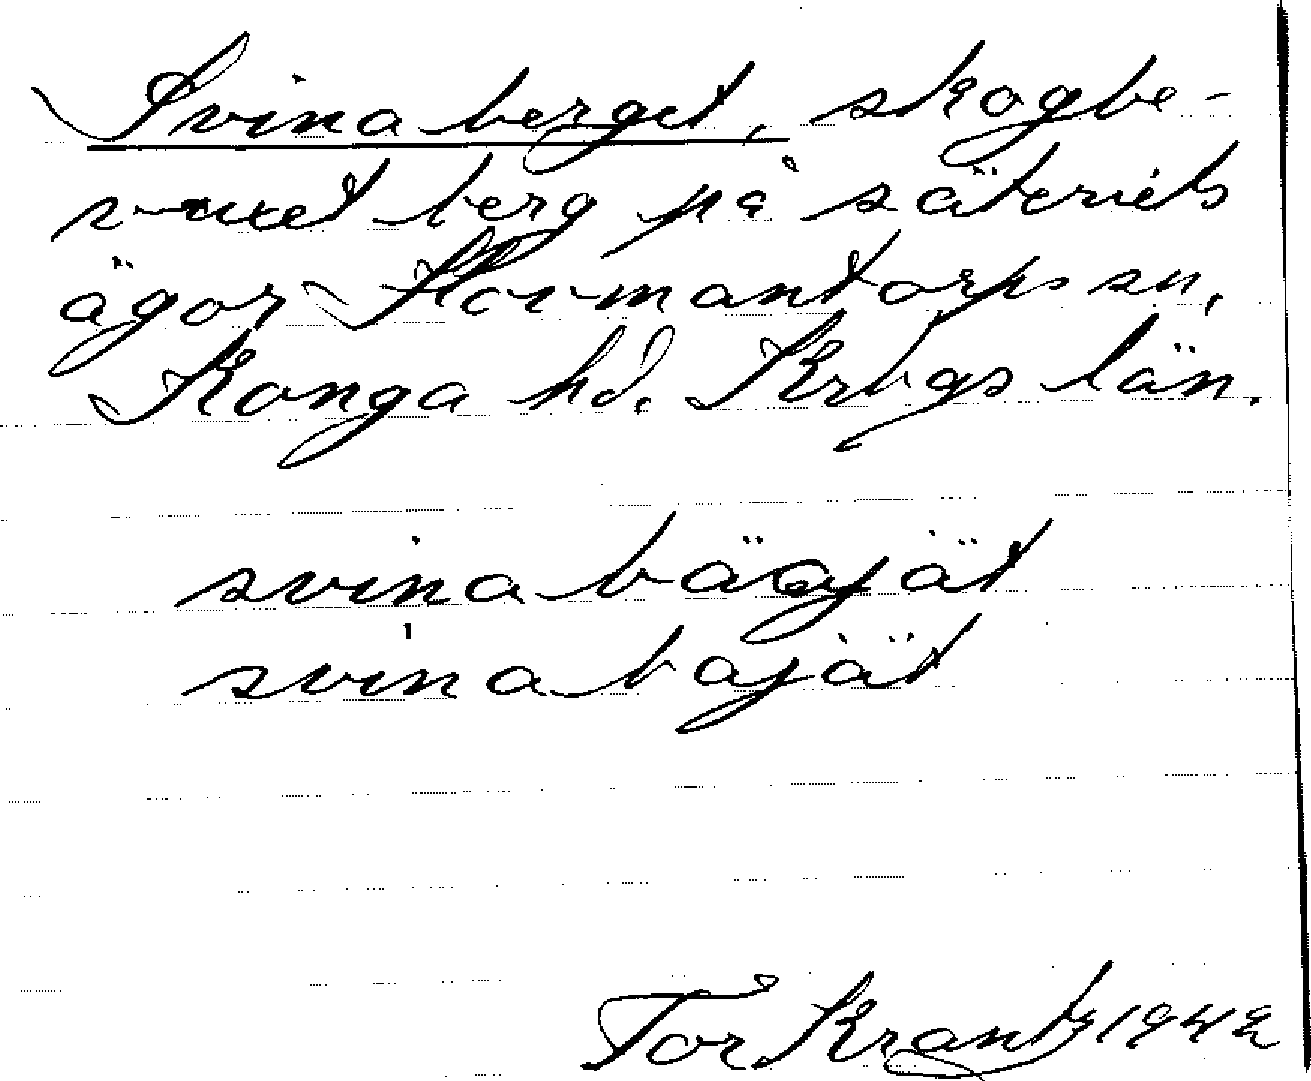 Svinaberget, skogbe-
vuxet berg på säteriets
ägor Hovmantorps sn,
Konga hd. Krbgs län.
svina bäajät
svina bajät
Tor Krantz 1942